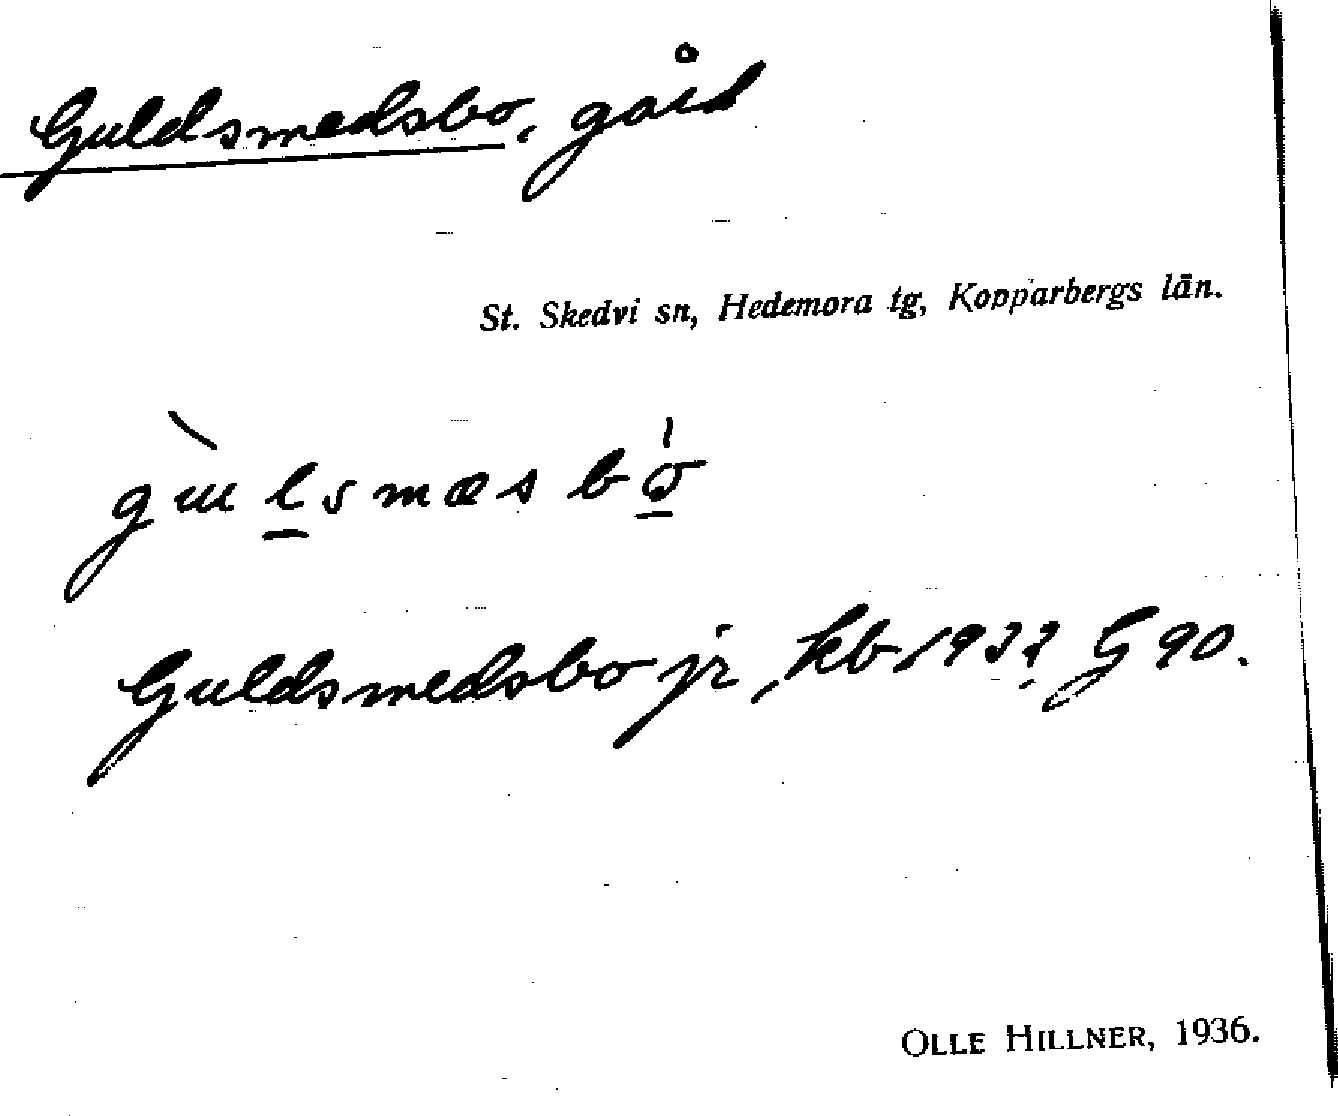 Guldsmedsbo, gård
St. Skedvi sn, Hedemora tg, Kopparbergs län.
gùl̲smæsbó̲
Guldsmedsbo jr, kb 1932 G 90.
OLLE HILLNER, 1936.